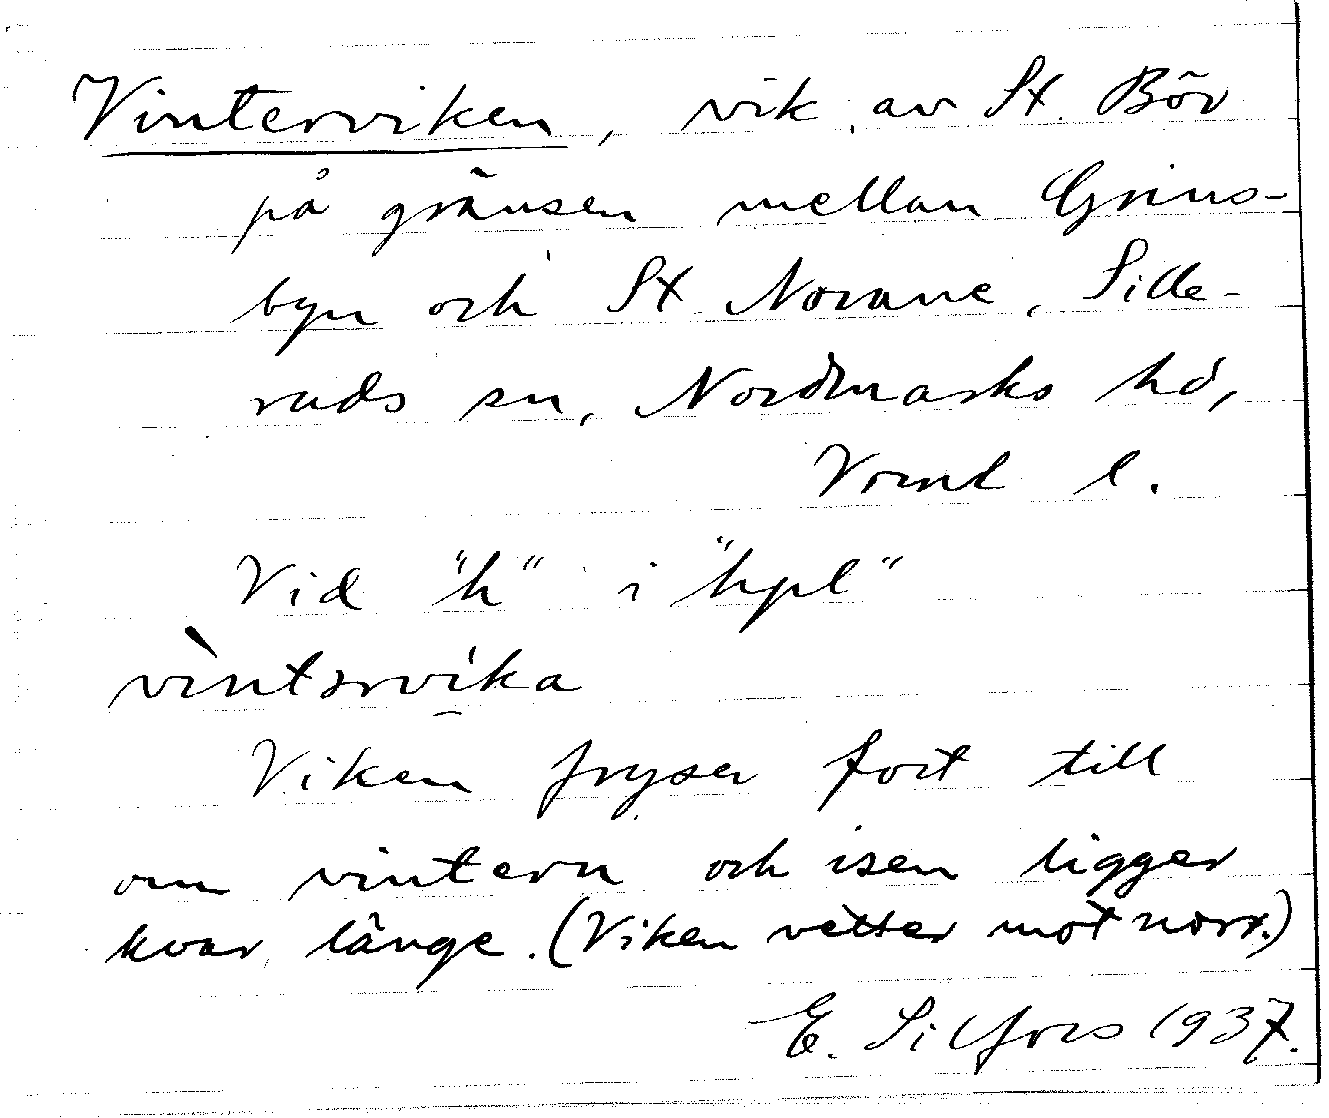 Vinterviken, vik av St. Bör
på gränsen mellan Grins-
byn och St Norane, Sille-
ruds sn, Nordmarks hd,
Vrml l.
Vid "h" i "hpl"
vìntərvìka
Viken fryser fort till
om vintern och isen ligger
kvar länge. (Viken vetter mot norr.)
E. Silfors 1937.